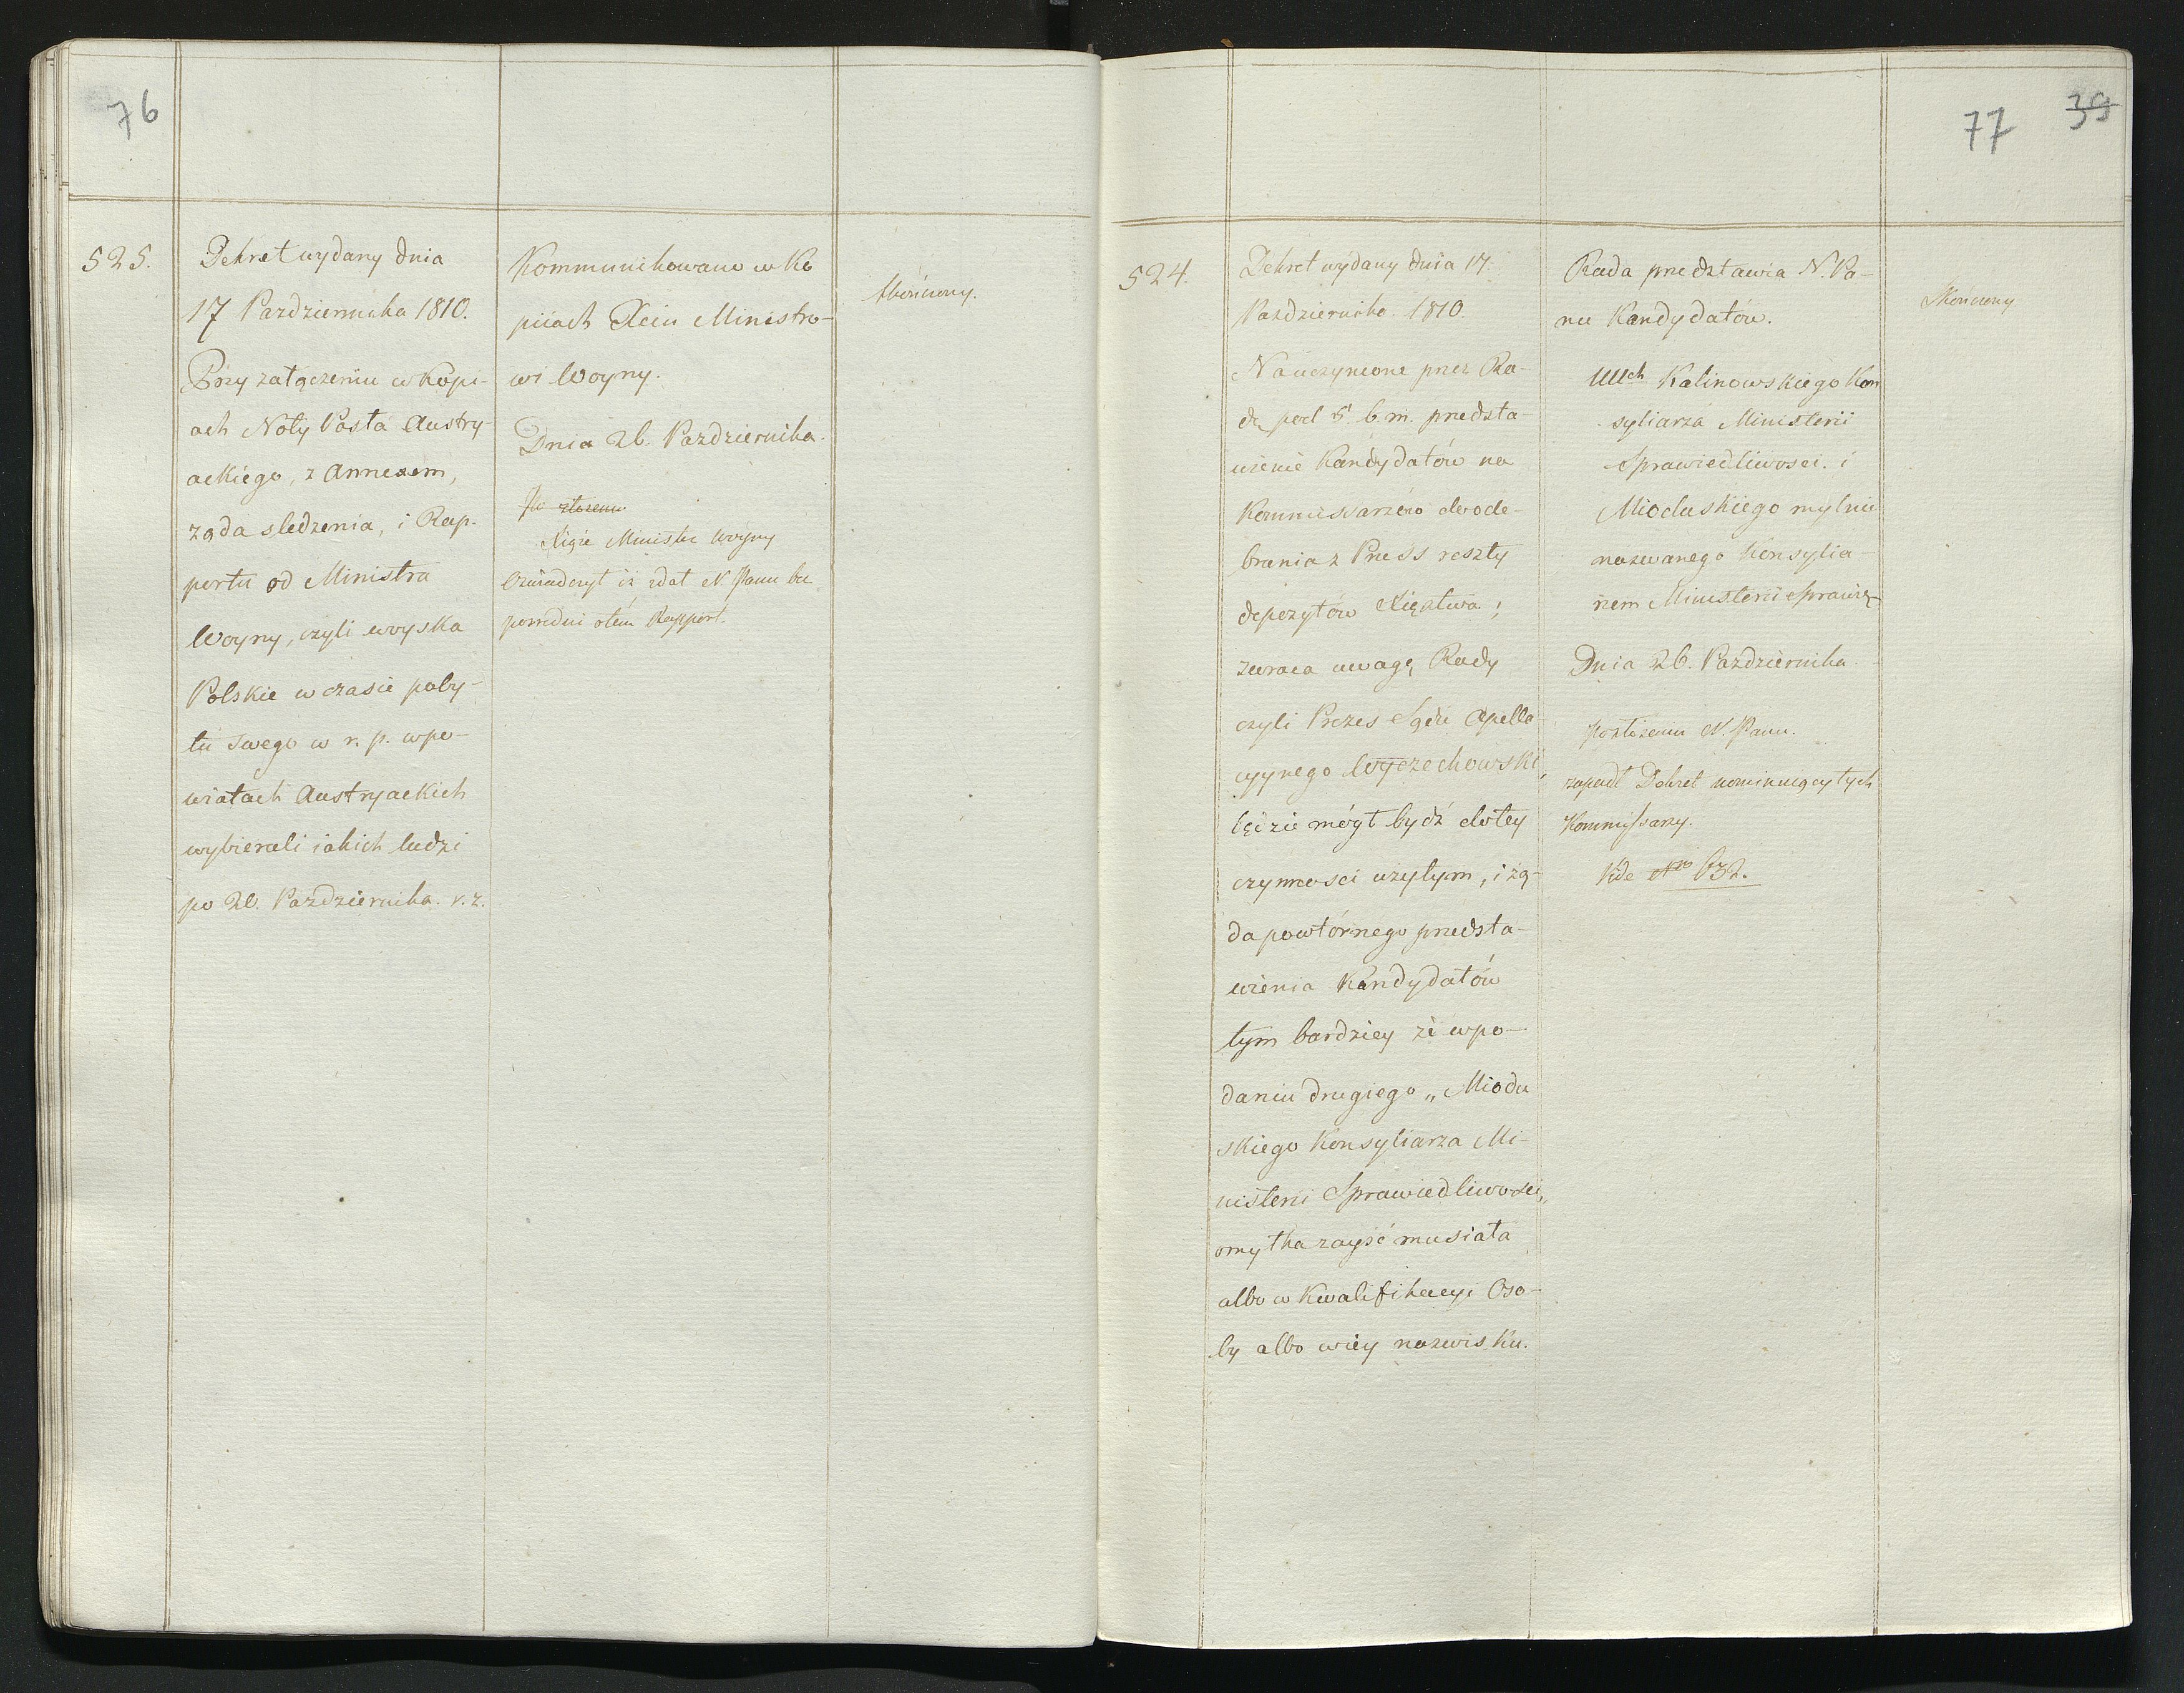 76
525.
Dekret wydany dnia
17 Pazdziernika 1810.
Przy załączeniu w Kopi-
ach Noty Posła Austry-
ackiego, z Annexem,
ząda sledzenia, i Rap-
portu od Ministra
Woyny, czyli woyska
Polskie w czasie poby-
tu swego w r. p. wpo-
wiatach Austryackich
wybierali iakich ludzi
po 20. Pazdziernika. r. z.
Kommunikowano w Ko
piiach Xciu Ministro-
wi Woyny.
Dnia 26. Pazdziernika.
Po złożeniu
Xiąże Minister Woyny
Oświadczył iż zdał N. Panu be
pośredni otem Rapport.
Skończony.
77 39
524.
Dekret wydany dnia 17.
Pazdziernika. 1810.
Na uczynione przez Ra-
dę pod 5. b. m. przedsta-
wienie Kandydatów na
Kommissarzów do ode-
brania z Pruss reszty
depozytów Xięstwa;
zwraca uwagę Rady
czyli Prezes Sądu Apella-
cyynego Wyczechowski,
będzie mógł bydź do tey
czynności użytym, i żą-
da powtórnego przedsta-
wienia Kandydatów
tym bardziey że wpo-
daniu drugiego „Miodu
skiego Konsyliarza Mi-
nisterii Sprawiedliwości,
omyłka zayść musiała
albo w Kwalifikacyi Oso-
by albo wiey nazwisku.
Rada przedstawia N. Pa-
nu Kandydatów.
UUch Kalinowskiego Kon
syliarza Ministerii
Sprawiedliwosci. i
Mioduskiego mylnie
nazwanego Konsylia-
rzem Ministerii Sprawie
Dnia 26. Pazdziernika.
po złożeniu N. Panu.
zapadł Dekret nominuiący tych
Kommissarzy.
Vide Nro 632.
Skończony